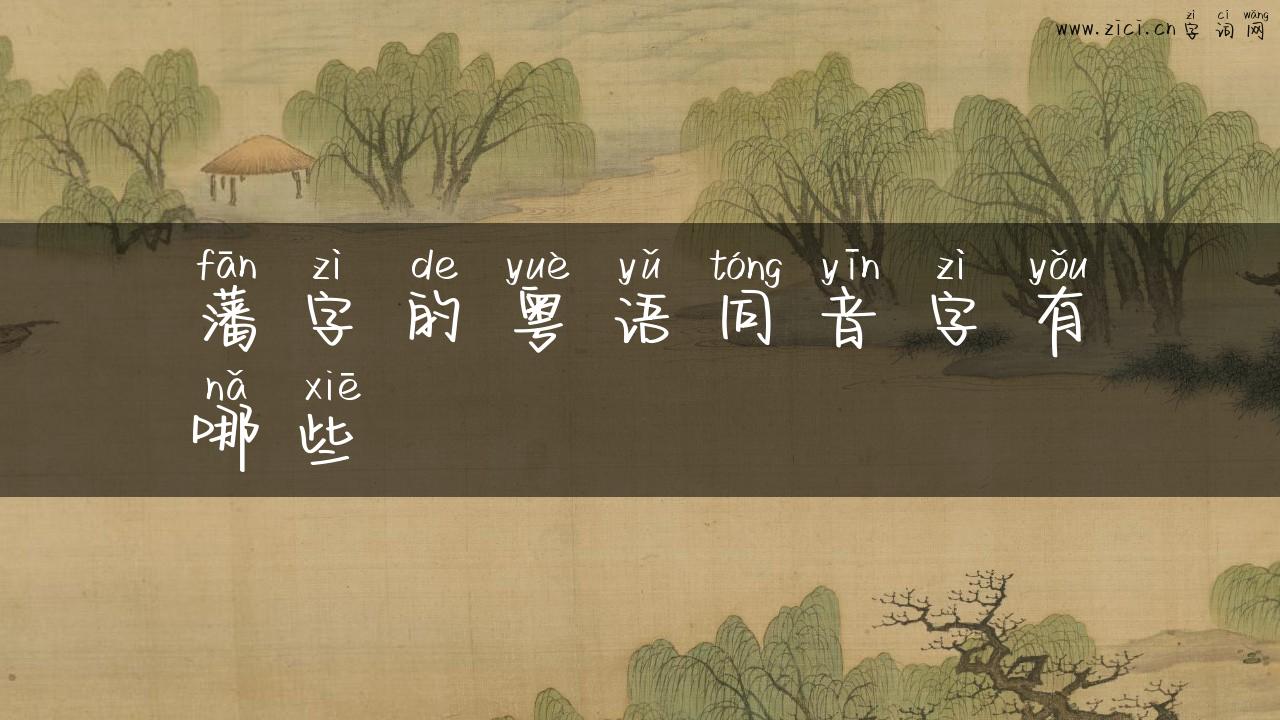 zì cí wǎng
www.zīcī.cn 字 词 网
fān zì de yuè yǔ tóng yīn zì yǒu
藩 字 的 粤 语 同 音 字 有
nǎ xiē
哪 些